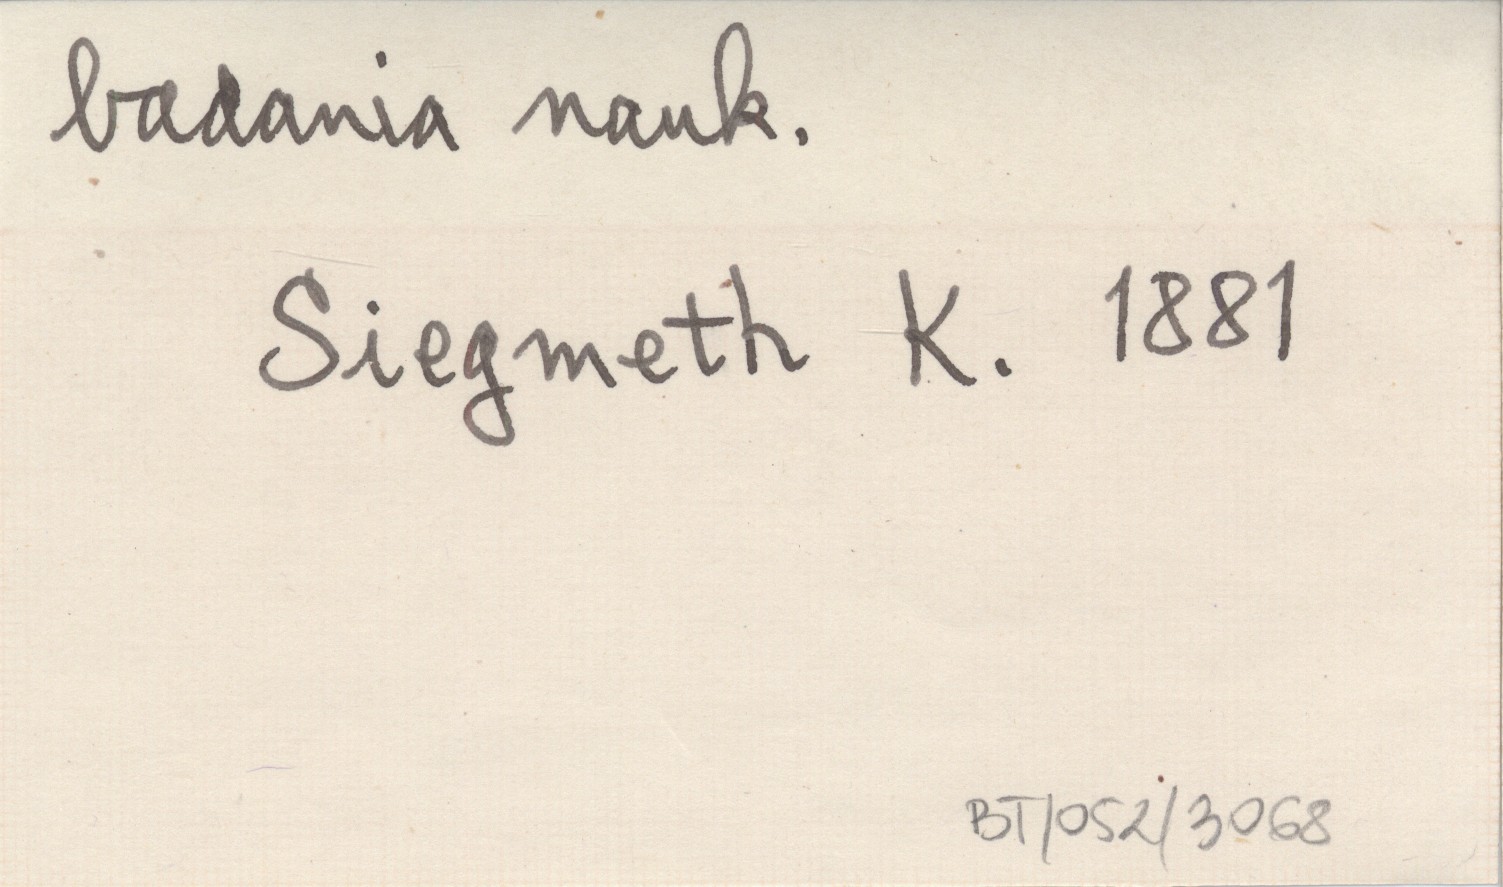 badania nauk.
Siegmeth K. 1881
BT/052/3068